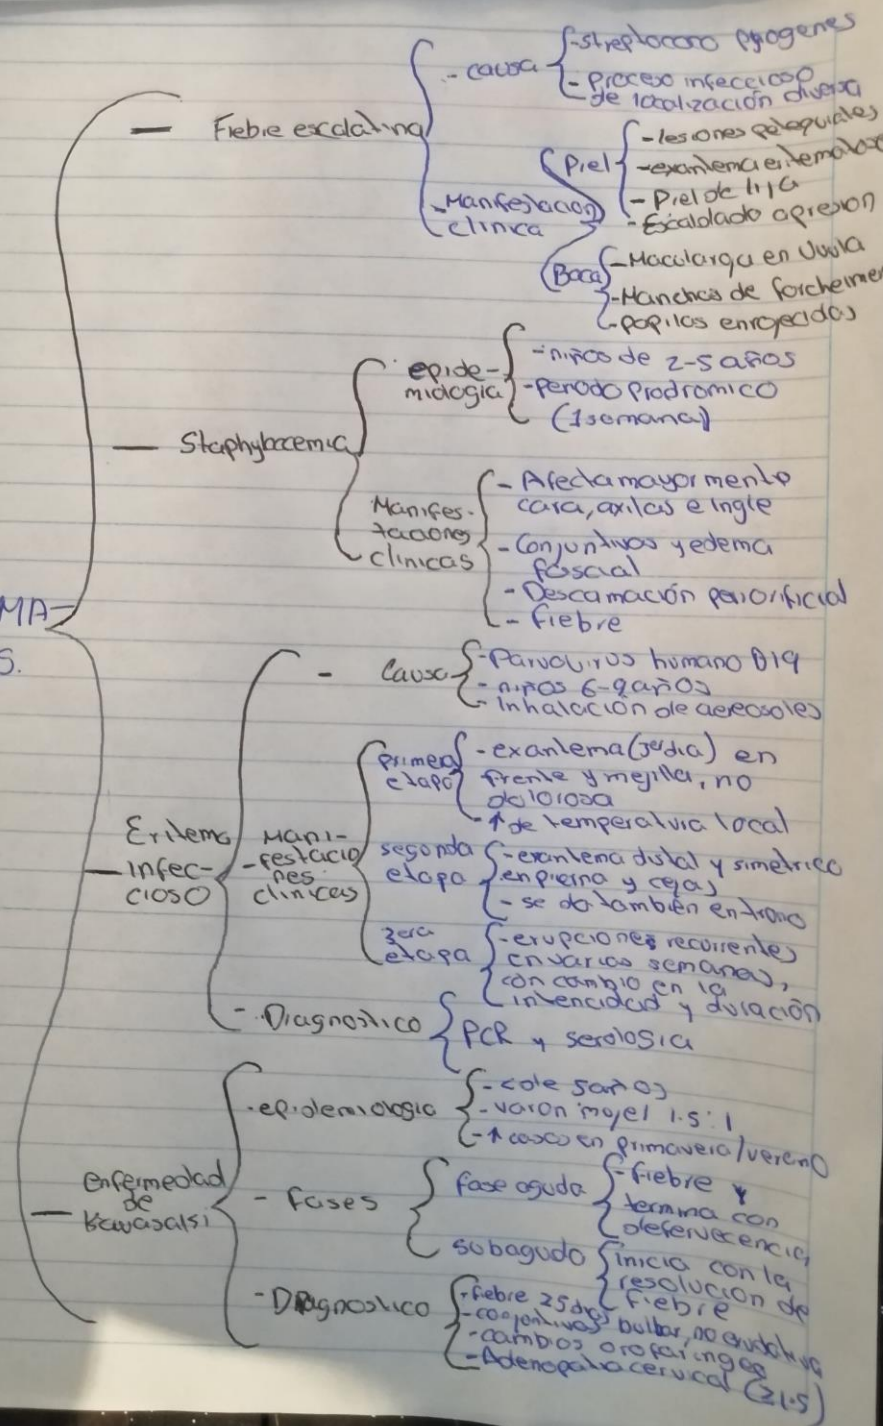 MA-
S.
- Fiebre escalatina
- causa
- streptococo pyogenes
- Proceso infeccioso
de localización diversa
- Manifestacion
clinica
Piel
- lesiones petequiales
- exantema eritematoso
- Piel de lija
- Escaldado a presion
Boca
- Macularga en Uvula
- Manchas de forcheimer
- papilas enrojecidas
- Staphylocemia
epide-
miologia
- niños de 2-5 años
- periodo prodromico
(1 semana)
Manifes-
taciones
clinicas
- Afecta mayormente
cara, axilas e ingle
- Conjuntivas y edema
fascial
- Descamación periorificial
- fiebre
- Eritema
infec-
cioso
- Causa
- Parvovirus humano B19
- niños 6-9 años
- Inhalación de aereosoles
- Mani-
festacio
nes
clinicas
primera
etapa
- exantema (3er dia) en
frente y mejilla, no
dolorosa
- ↑ de temperatura local
segonda
etapa
- exantema distal y simetrico
en pierna y cejas
- se da también en tronco
3era
etapa
- erupciones recurrentes
en varias semanas,
con cambio en la
intencidad y duración
- Diagnostico
PCR y serologia
- enfermedad
de
Kawasaki
- epidemiologia
- <ole 5 años
- varon mujer 1.5:1
- ↑ casos en primavera/verano
- fases
fase aguda
- fiebre y
termina con
defervecencia
subagudo
inicia con la
resolucion de
fiebre
- Diagnostico
- fiebre ≥5 dias
- conjontivas bulbar, no exudativa
- cambios orofaringeo
- Adenopatia cervical (≥1.5)